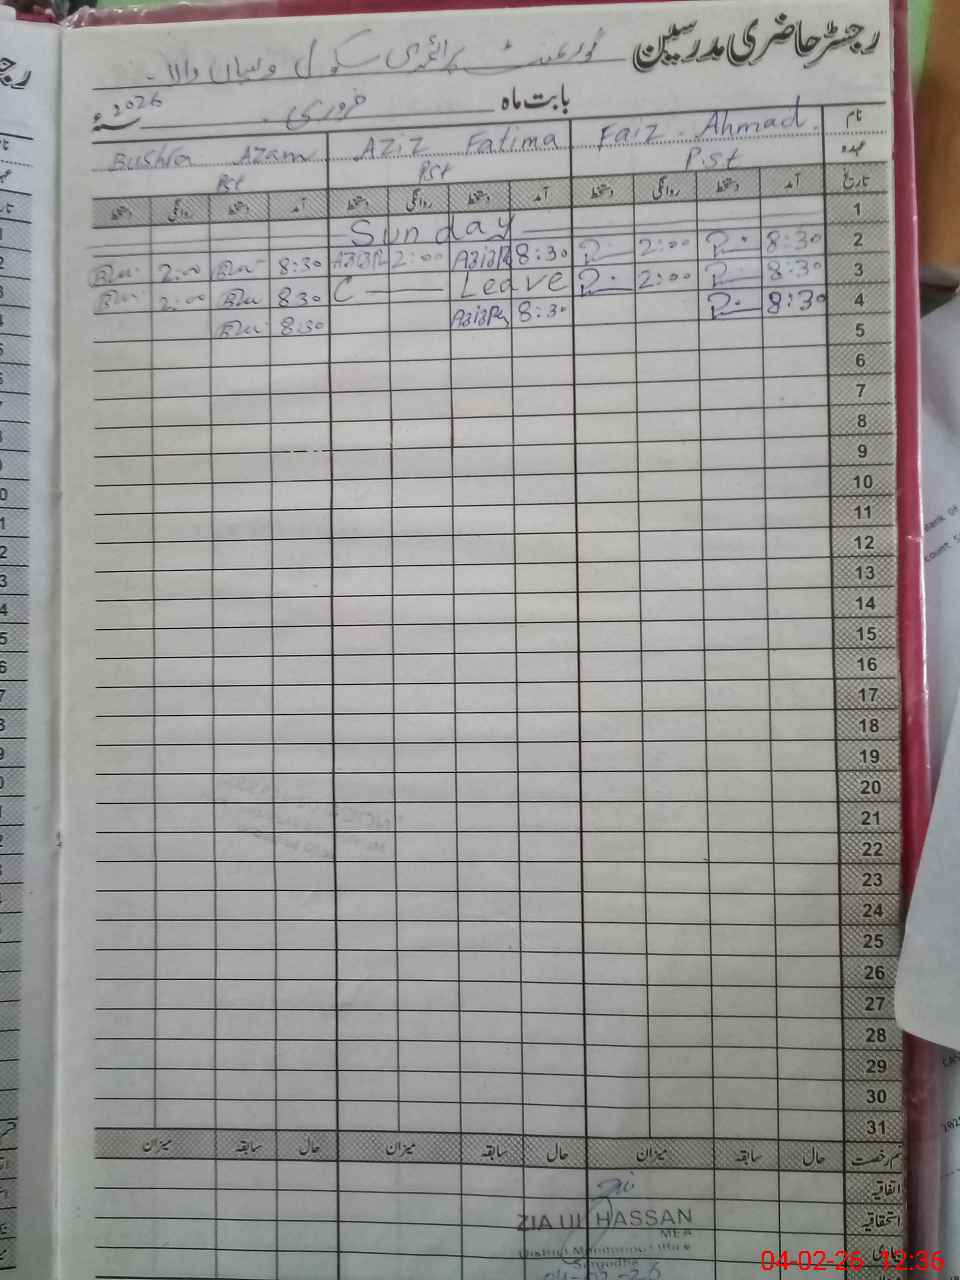 رجسٹر حاضری مدرسین گورنمنٹ پرائمری سکول والا
بابت ماہ فروری 2026ء
نام Faiz Ahmad. Aziz Fatima Bushra Azam
عہدہ P.st Pst Pst
تاریخ آمد دستخط روانگی دستخط آمد دستخط روانگی دستخط آمد دستخط روانگی دستخط
1 Sunday
2 8:30 2:00 8:30 2:00 8:30 2:00
3 8:30 2:00 C Leave 8:30 2:00
4 8:30 8:30 8:30
5
6
7
8
9
10
11
12
13
14
15
16
17
18
19
20
21
22
23
24
25
26
27
28
29
30
31
قسم رخصت حال سابقہ میزان حال سابقہ میزان حال سابقہ میزان
اتفاقیہ
استحقاقیہ
بیماری
ZIA UL HASSAN
MEA
District Monitoring Office
Sargodha
04-02-26
04-02-26 12:36